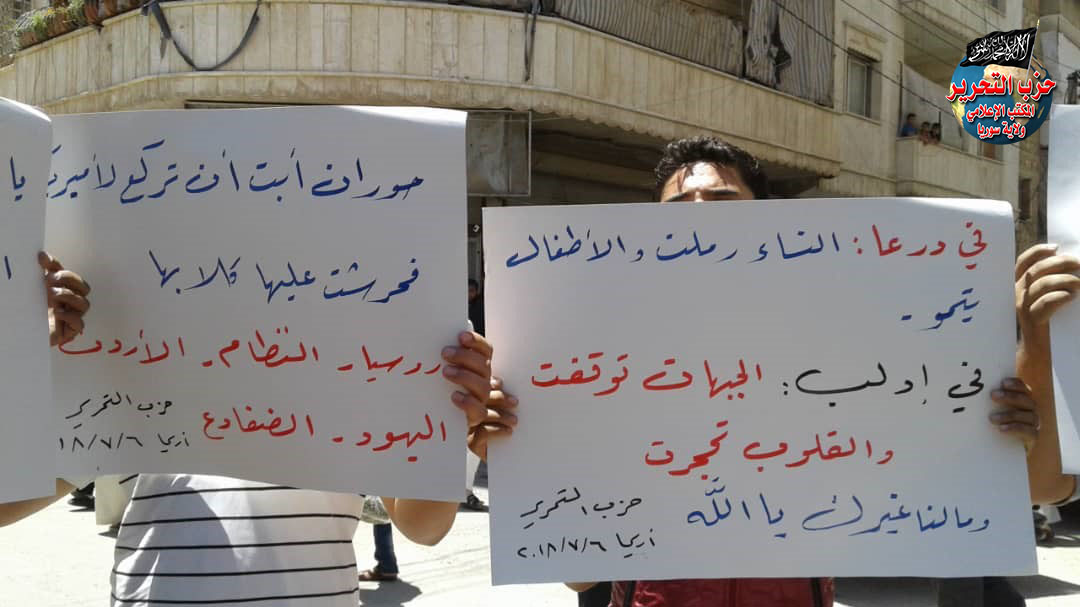 حزب التحرير
المكتب الإعلامي
ولاية سوريا
في درعا: النساء رملت والأطفال
يتمو.
في إدلب: الجبهات توقفت
والقلوب تحجرت
ومالنا غيرك يا الله
حزب التحرير
أريحا ٢٠١٨/٧/٦
حوران أبت أن تركع لأميركا
فحرشت عليها كلابها
روسيا. النظام. الأردن
اليهود. الضفادع
حزب التحرير
أريحا ١٨/٧/٦
يا